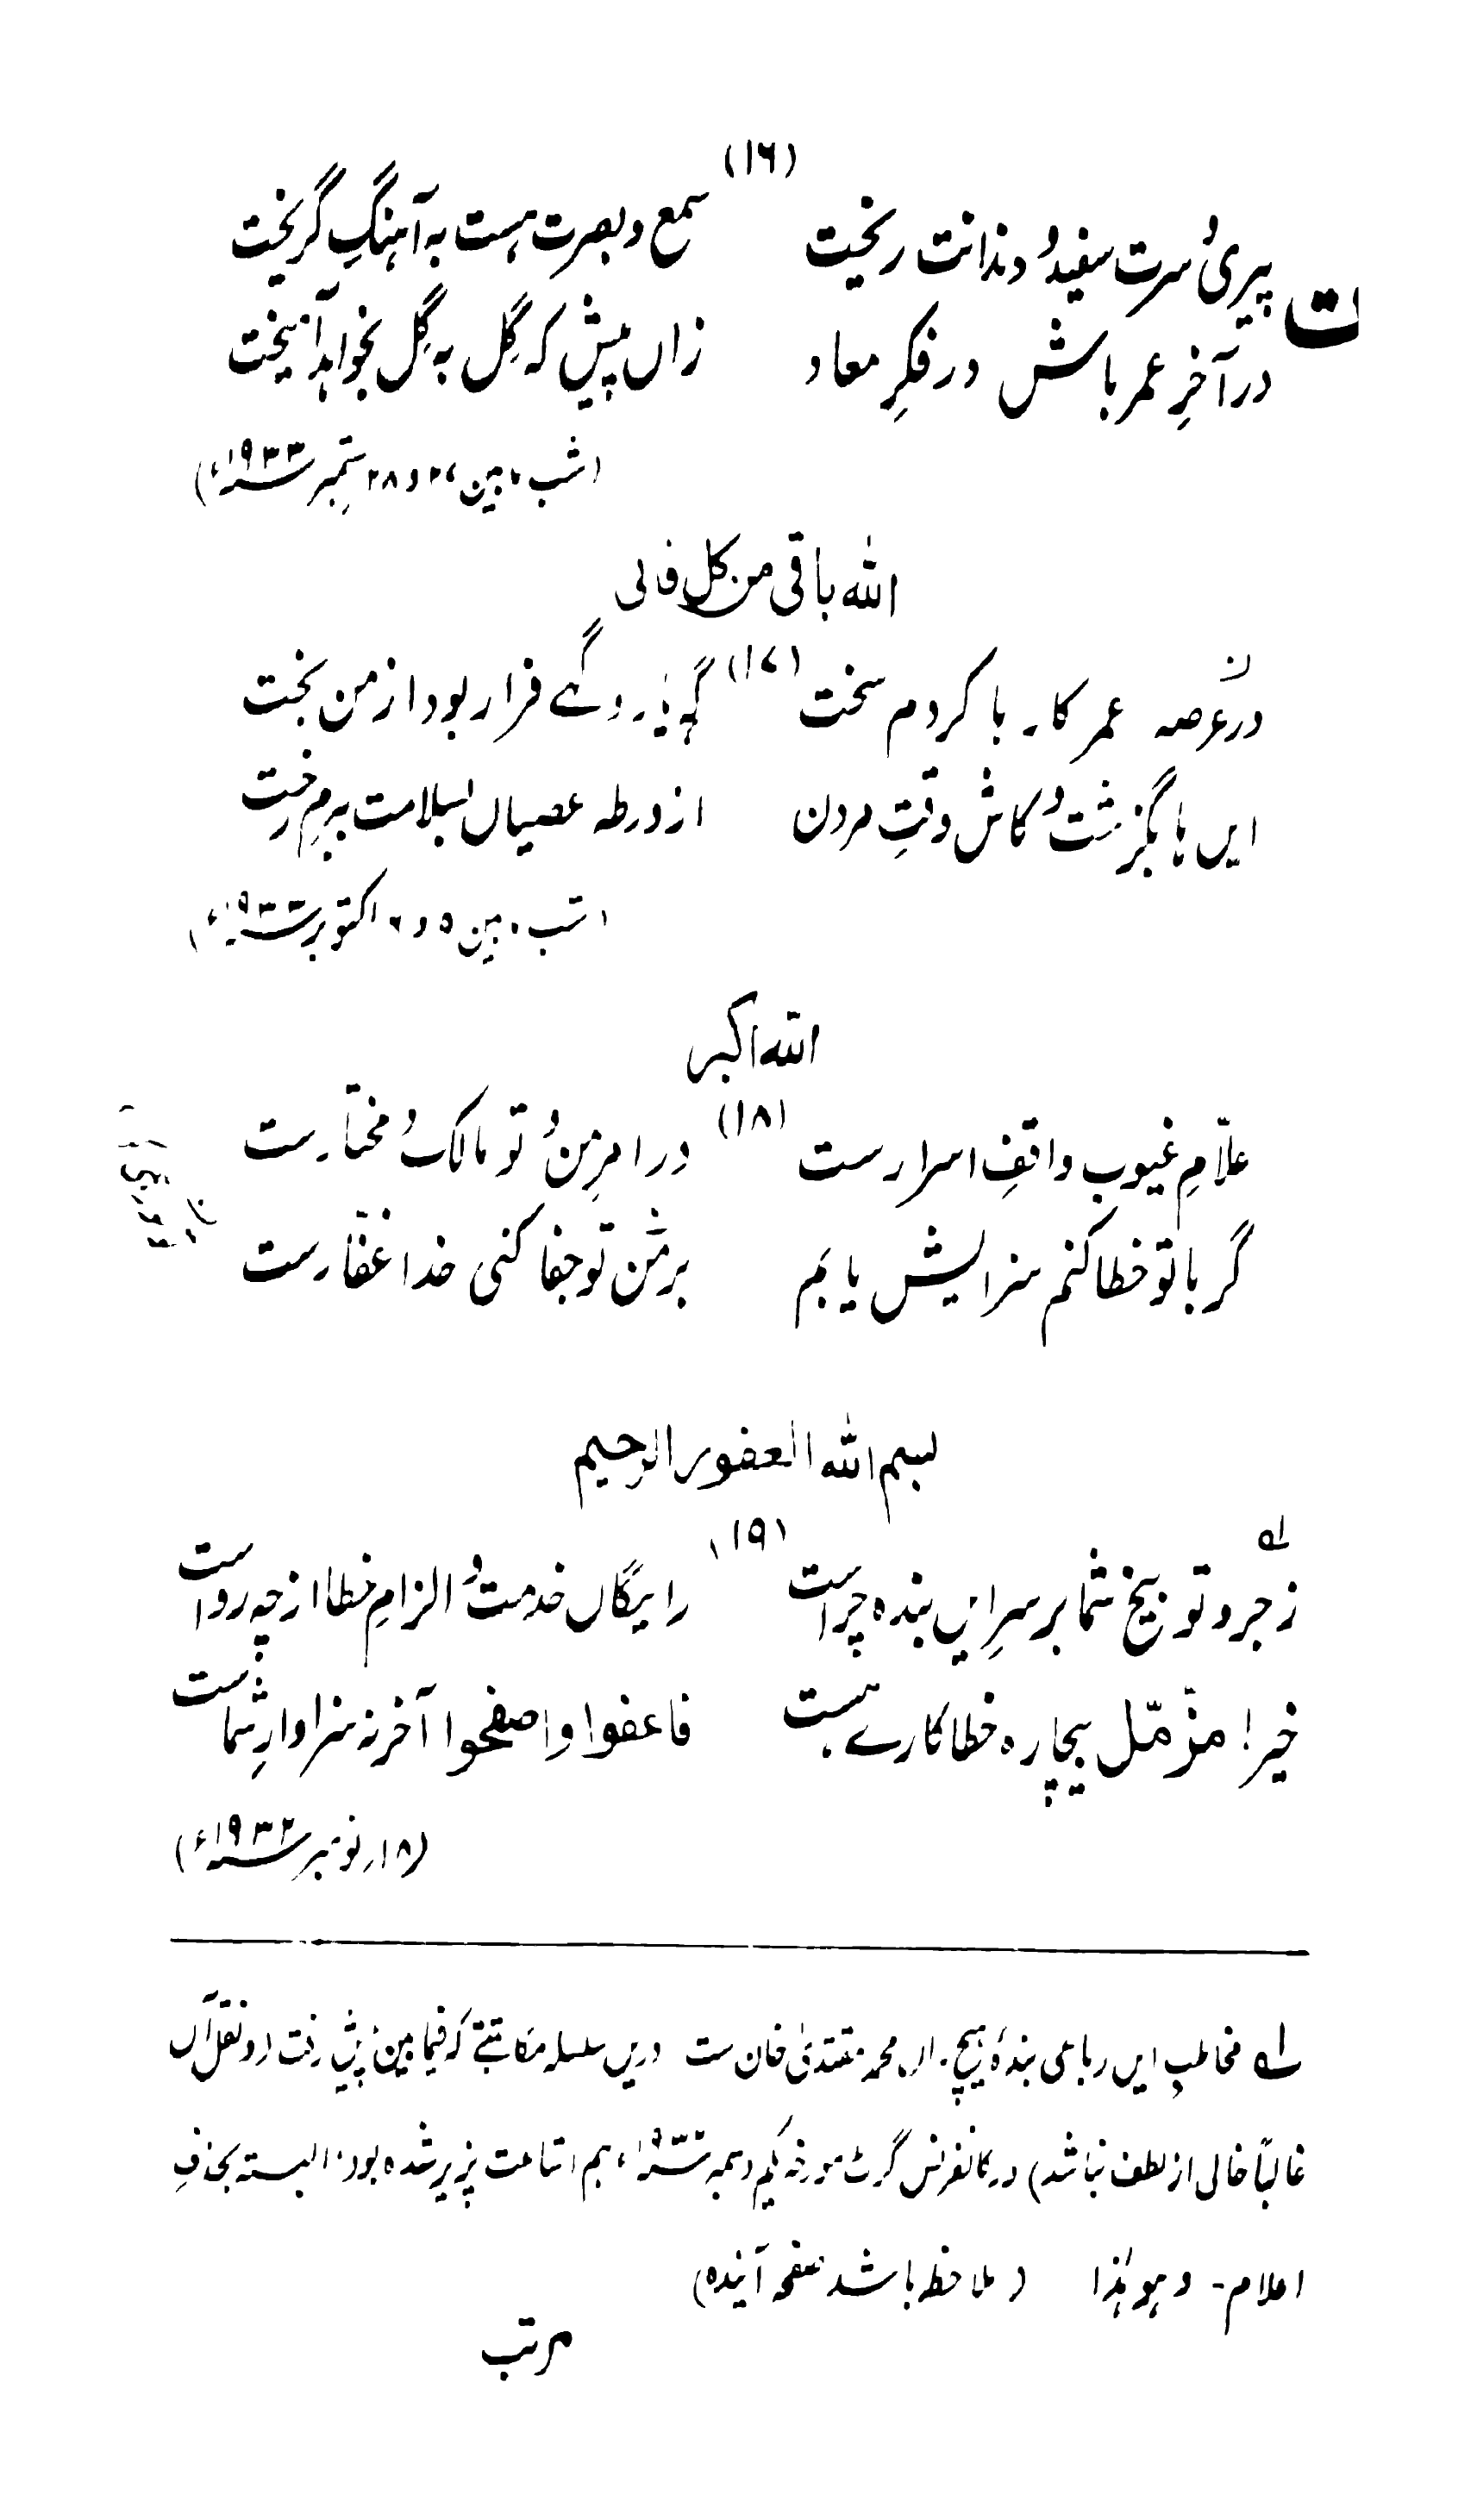 (۱۶)
ت
پیریٔ سرت سفید دندانت ریخت
سمع و بصرت ہست بہ آہنگِ گریخت
در آخرِ عمر باش در فکرِ معاد
زاں پیش کہ گِل بہ گِل بخواہد آمیخت
(شب ۲۷ و ۲۸ ستمبر ۱۹۳۳ء)
الله باقی من کل فانی
(۱۷)
در عرصہ عمر کارہا کردم سخت
گہ یار و گہے فرار بود از من بخت
ایں ہا بگزشت کاش وقتِ مردن
از ورطہ عصیاں بسلامت ببرم رخت
(شب ۵ و ۶ اکتوبر ۱۹۳۳ء)
الله اکبر
(۱۸)
علّامِ غیوب واقفِ اسرارست
در امرِ من تو مالک مختارست
گر با تو خطا کنم سزایش یابم
بر من تو جفا کنی خدا غفّارست
بسم الله الغفور الرحیم
(۱۹)
زجر و توبیخ شما بر سرِ ایں بندہ چراست
رایگاں خدمت الزامِ خطا از چہ رواست
خیر! مزّمّل بیچارہ خطا کارے ہست
فاعفوا واصفحوا آخر نہ سزاوارِ شماست
(۱۸؍ نومبر ۱۹۳۲ء)
لہ مخاطبِ ایں رباعی بندہٴ ہیچ محمد مقتدیٰ خان ست دریں سلسلہ مکاتبتے کہ فیما بین پیش رفت (و نقل آں
غالباً خالی از لطف نباشد) در کانفرنس گزٹ مورخہ یکم دسمبر ۱۹۳۲ء ہم اشاعت پذیر شدہ بود۔ البتہ بحذفِ
اعلام۔ و ہو ہٰذا (ملاحظہ باشد صفحہ آیندہ)
مرتب